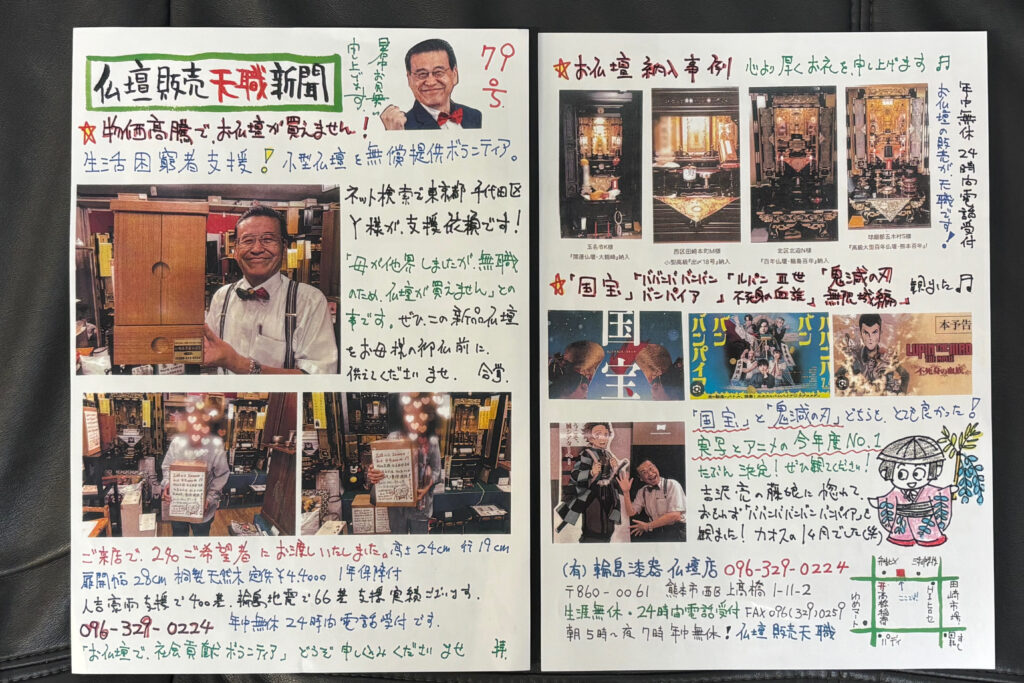 仏壇販売天職新聞
暑中お見舞い
申し上げます
79
号
☆物価高騰で、お仏壇が買えません!
生活困窮者支援!小型仏壇を無償提供ボランティア。
ネット検索で東京都千代田区
Y様が、支援依頼です!
「母が他界しましたが、無職
のため、仏壇が買えません」との
事です。ぜひ、この新品仏壇
をお母様の御仏前に、
供えてくださいませ. 合掌.
ご来店で、2名ご希望者にお渡しいたしました。高さ24cm 行19cm
扉開巾28cm 桐製天然木 定価¥44000 1年保障付
人吉豪雨支援で400基、輪島地震で66基支援実績ございます。
096-329-0224 年中無休24時間電話受付です.
「お仏壇で、社会貢献ボランティア」どうぞ申し込みくださいませ 拝.
☆お仏壇納入事例 心より厚くお礼を申し上げます♬
年中無休 24時間電話受付
お仏壇の販売が天職です!
玉名市K様
『開運仏壇・大鶴崎』納入
西区田崎本町M様
小型高級『金が18号』納入
北区北迫N様
『百年仏壇・輪島百年』納入
球磨郡五木村S様
『高級大型百年仏壇・熊本百年』
☆「国宝」「ババンババンバン
バンパイア」「ルパン三世
不死身の血族」「鬼滅の刃
無限城編」観ました♬
国宝
バンバン
バンパイア
本予告
LUPIN THE IIIRD
THE MOVIE
不死身の血族
「国宝」と「鬼滅の刃」どちらも、とても良かった!
実写とアニメの今年度NO.1
たぶん決定!ぜひ観てください!
吉沢亮の藤娘に惚れて、
おもわず「ババンババンバンバンパイア」も
観ました!カオスの1ヶ月でした(笑)
(有)輪島漆器仏壇店 096-329-0224
〒860-0061 熊本市西区上高橋1-11-2
生涯無休・24時間電話受付 FAX096(329)0259
朝5時〜夜7時年中無休!仏壇販売天職
ここ
ゆめマート
田崎市場